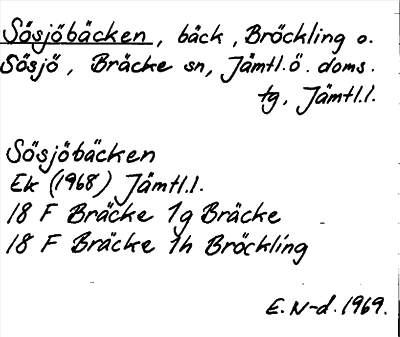 Sösjöbäcken, bäck, Bröckling o.
Sösjö, Bräcke sn, Jämtl.ö. doms.
tg, Jämtl.l.
Sösjöbäcken
Ek (1968) Jämtl.l.
18 F Bräcke 1g Bräcke
18 F Bräcke 1h Bröckling
E. N-d. 1969.